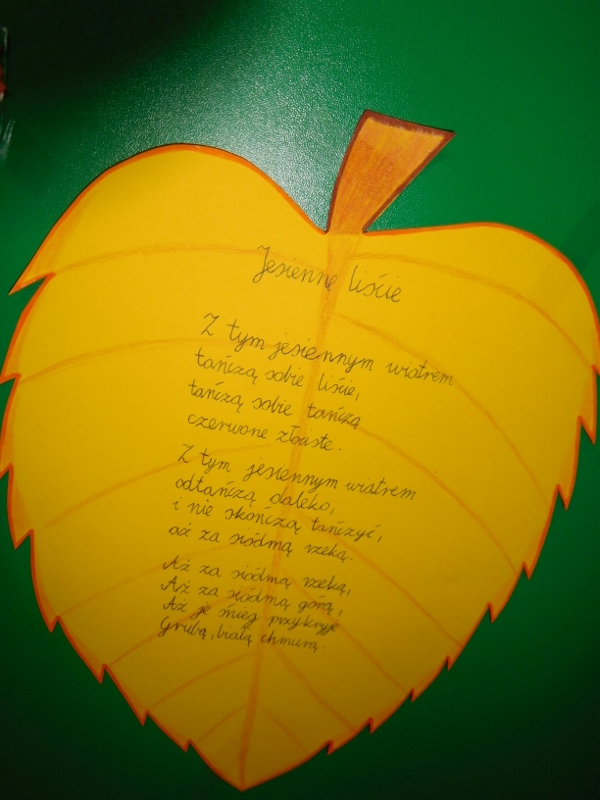 Jesienne liście
Z tym jesiennym wiatrem
tańczą sobie liście,
tańczą sobie tańczą
czerwone złociste.
Z tym jesiennym wiatrem
odtańczą daleko,
i nie skończą tańczyć,
aż za siódmą rzeką.
Aż za siódmą rzeką,
Aż za siódmą górą,
Aż je śnieg przykryje
Grubą, białą chmurą.